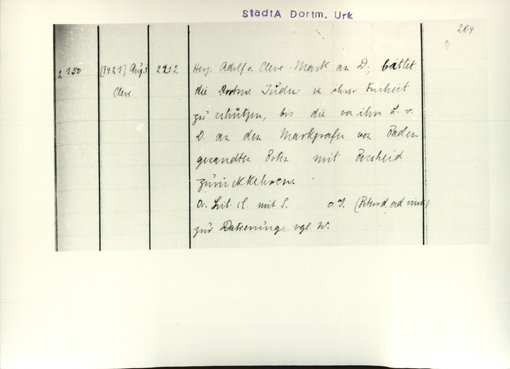 StadtA Dortm. Urk
204
2150 [1429] Aug. 2212 Herz. Adolf v. Cleve-Mark an D., bittet
Cleve die Dortm. Juden in ihrer Freiheit
zu schützen, bis die von ihm u. v.
D. an den Markgrafen von Baden
gesandten Boten mit Bescheid
zurückkehren.
mit S.
zur Datierung vgl. W.